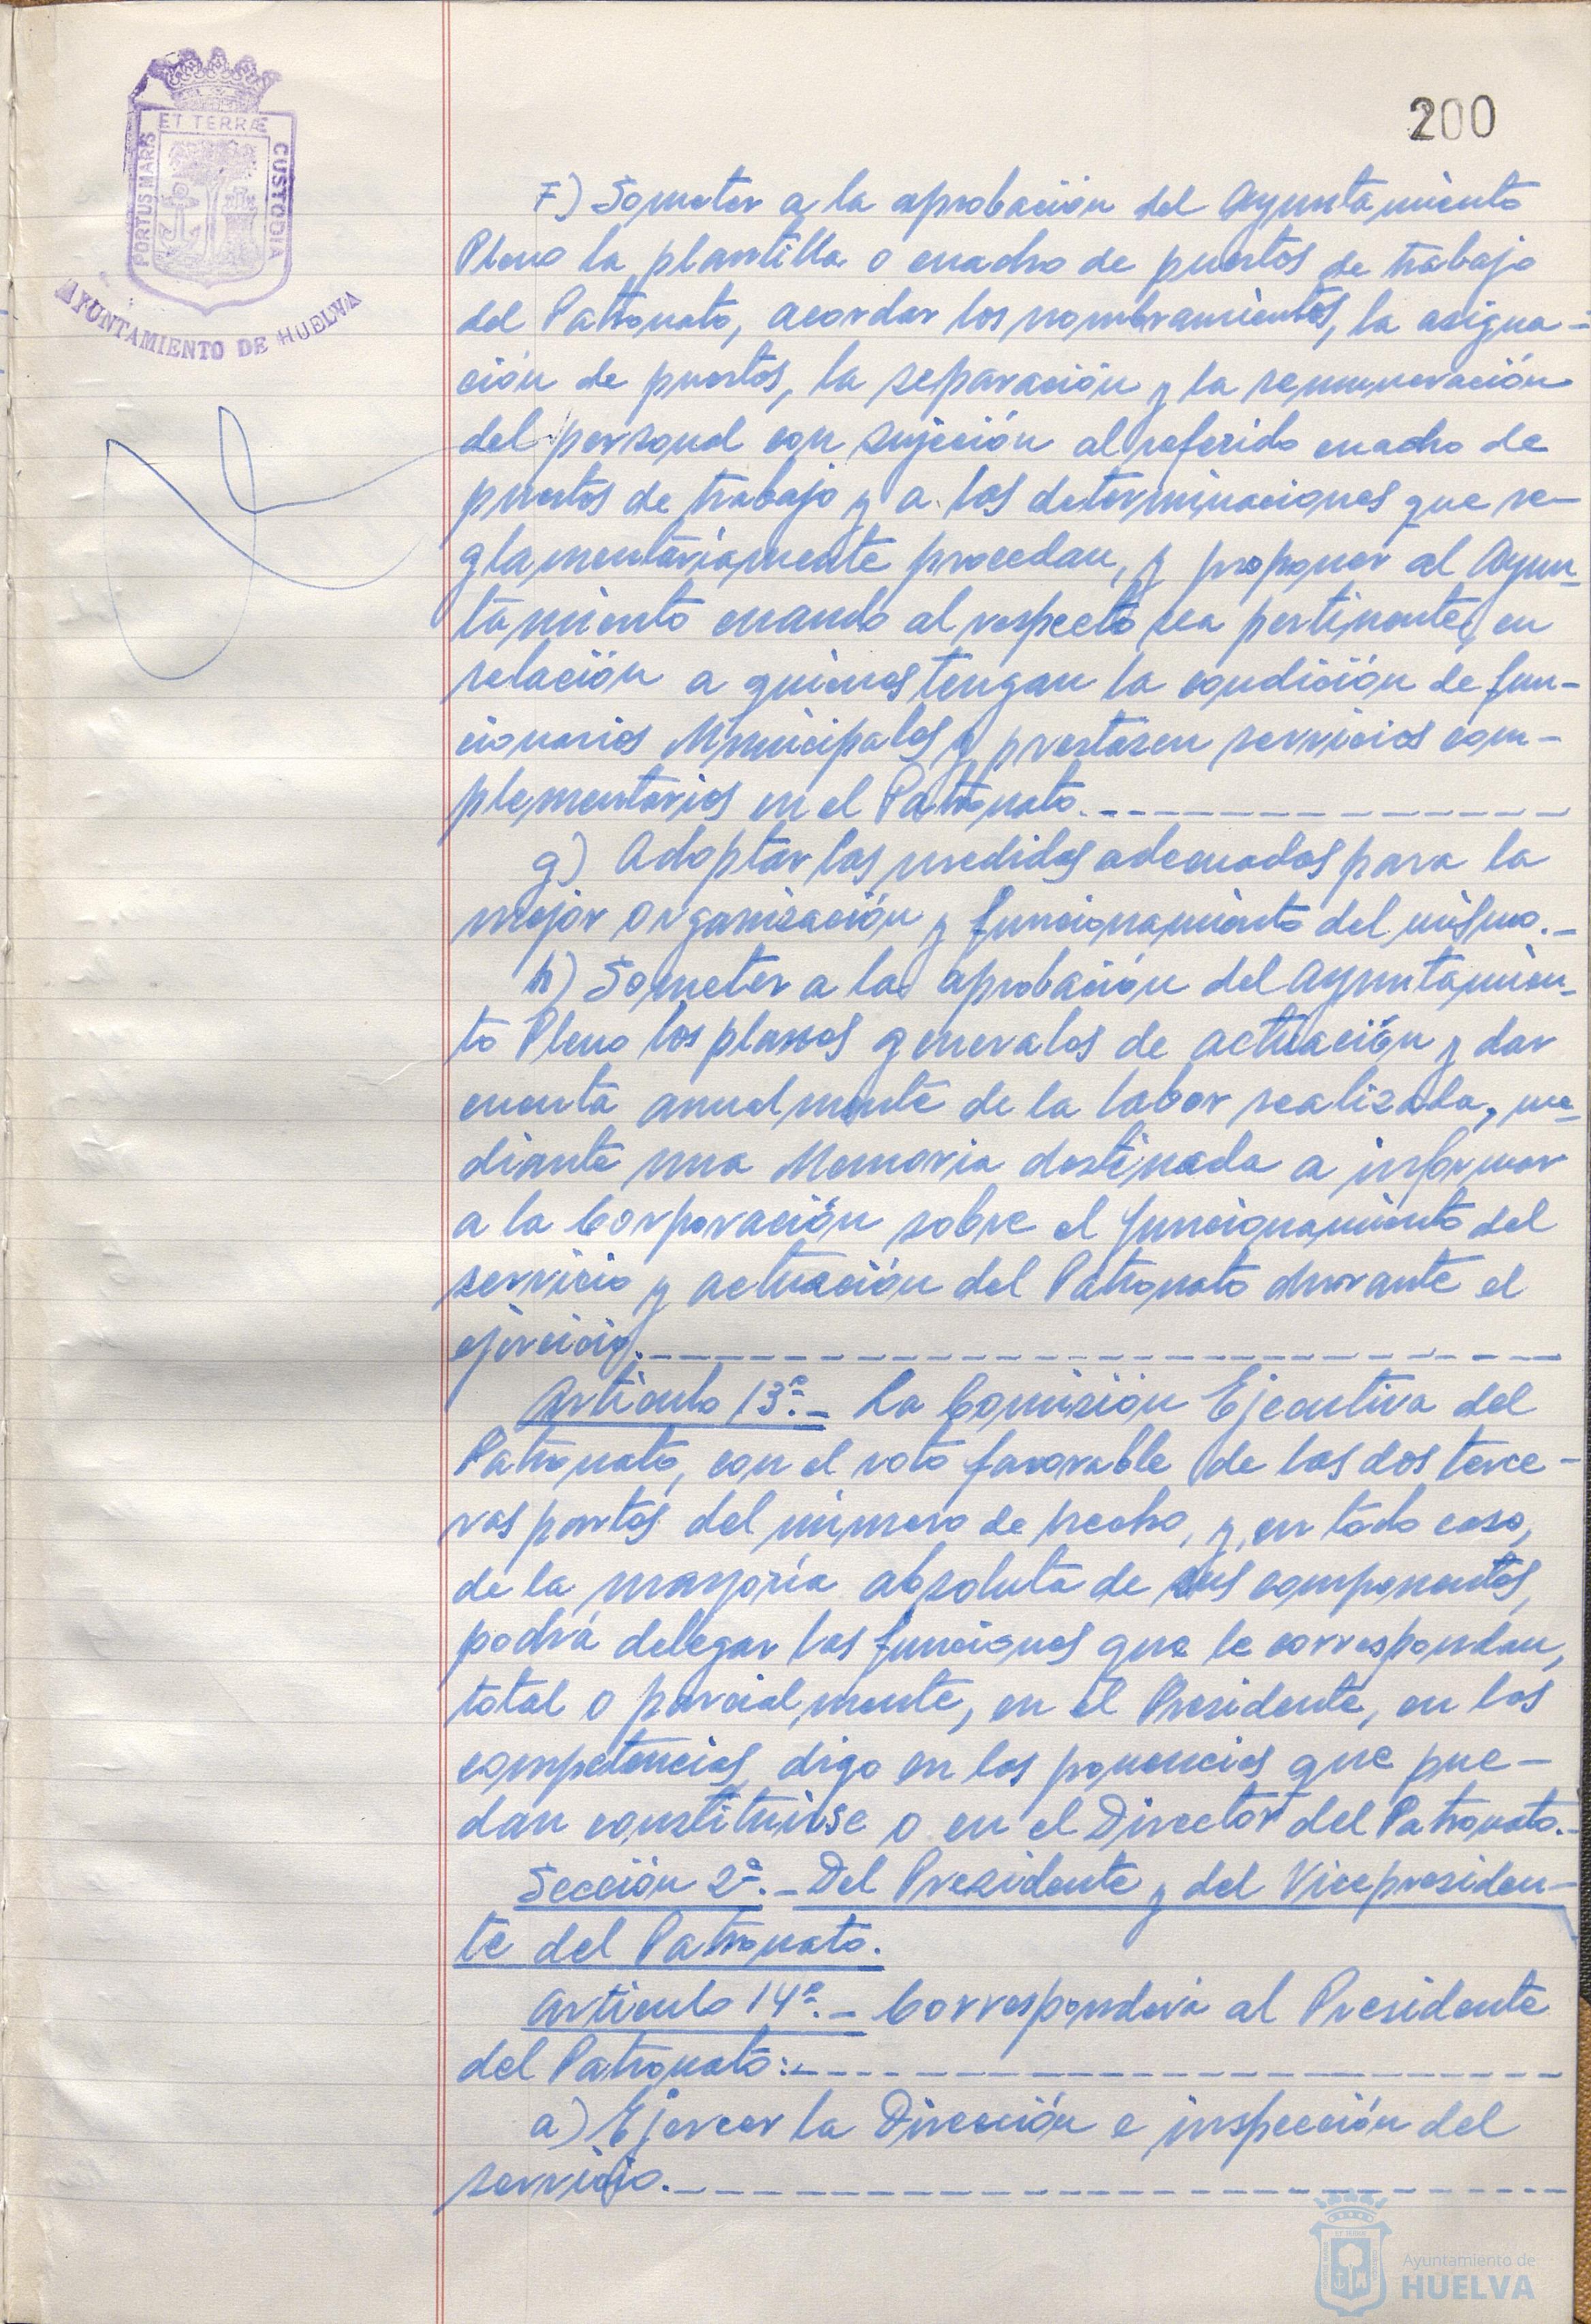 ET TERRÆ
PORTUS MARIS
CUSTODIA
AYUNTAMIENTO DE HUELVA
200
F) Someter a la aprobación del Ayuntamiento
Pleno la plantilla o cuadro de puestos de trabajo
del Patronato, acordar los nombramientos, la asigna-
ción de puestos, la separación y la remuneración
del personal con sujeción al referido cuadro de
puestos de trabajo y a las determinaciones que re-
glamentariamente procedan, y proponer al Ayun-
tamiento cuando al respecto sea pertinente, en
relación a quienes tengan la condición de fun-
cionarios Municipales y prestasen servicios com-
plementarios en el Patronato.
g) Adoptar las medidas adecuadas para la
mejor organización y funcionamiento del mismo.-
h) Someter a la aprobación del Ayuntamien-
to Pleno los planes generales de actuación y dar
cuenta anualmente de la labor realizada, me-
diante una Memoria destinada a informar
a la Corporación sobre el funcionamiento del
servicio y actuación del Patronato durante el
ejercicio.
Artículo 13º.- La Comisión Ejecutiva del
Patronato, con el voto favorable de las dos terce-
ras partes del número de hecho, y, en todo caso,
de la mayoría absoluta de sus componentes,
podrá delegar las funciones que le correspondan,
total o parcialmente, en el Presidente, en las
competencias, digo en las ponencias que pue-
dan constituirse o en el Director del Patronato.-
Sección 2ª.- Del Presidente y del Vicepresiden-
te del Patronato.
Artículo 14º.- Corresponderá al Presidente
del Patronato:-
a) Ejercer la Dirección e inspección del
servicio.
Ayuntamiento de
HUELVA